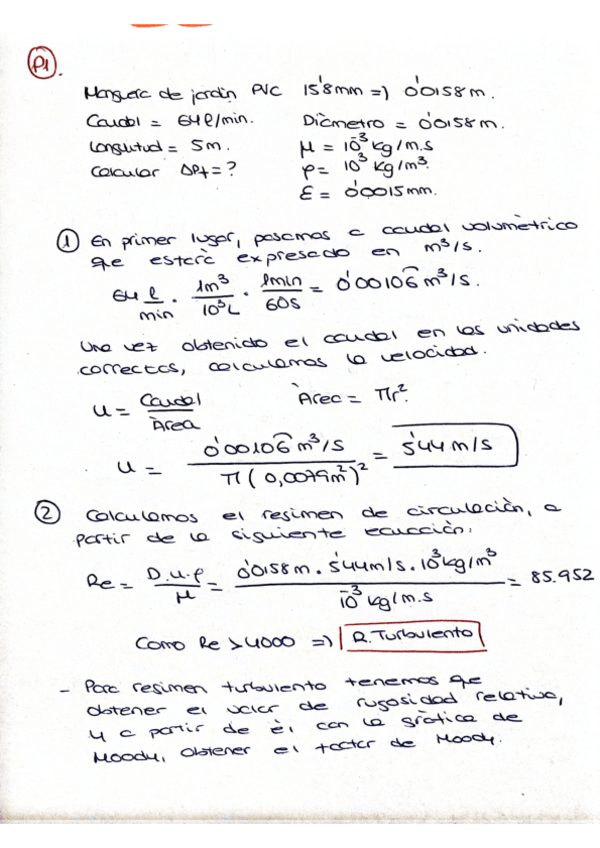 P1.
Manguera de jardín PVC 15'8mm => 0'0158 m.
Caudal = 64 l/min. Diàmetro = 0'0158 m.
Longuitud = 5m. μ = 10⁻³ kg/m.s
Calcular ΔPf = ? ρ = 10³ kg/m³.
ε = 0'0015mm.
① En primer lugar, pasamos a caudal volumètrico
que estarà expresado en m³/s.
64 l/min · 1m³/10³L · 1min/60s = 0'00106̂ m³/s.
Una vez obtenido el caudal en las unidades
correctas, calculamos la velocidad.
u = Caudal/Àrea Àrea = πr².
u = 0'00106̂ m³/s / π(0,0079m²)² = 5'44 m/s
② Calculamos el regimen de circulaciòn, a
partir de la siguiente ecuacciòn:
Re = D.u.ρ/μ = 0'0158m . 5'44m/s . 10³kg/m³ / 10⁻³ kg/m.s = 85.952
Como Re > 4000 => R. Turbulento
- Para regimen turbulento tenemos que
obtener el valor de rugosidad relativa,
y a partir de èl con la gràfica de
Moody, obtener el factor de Moody.